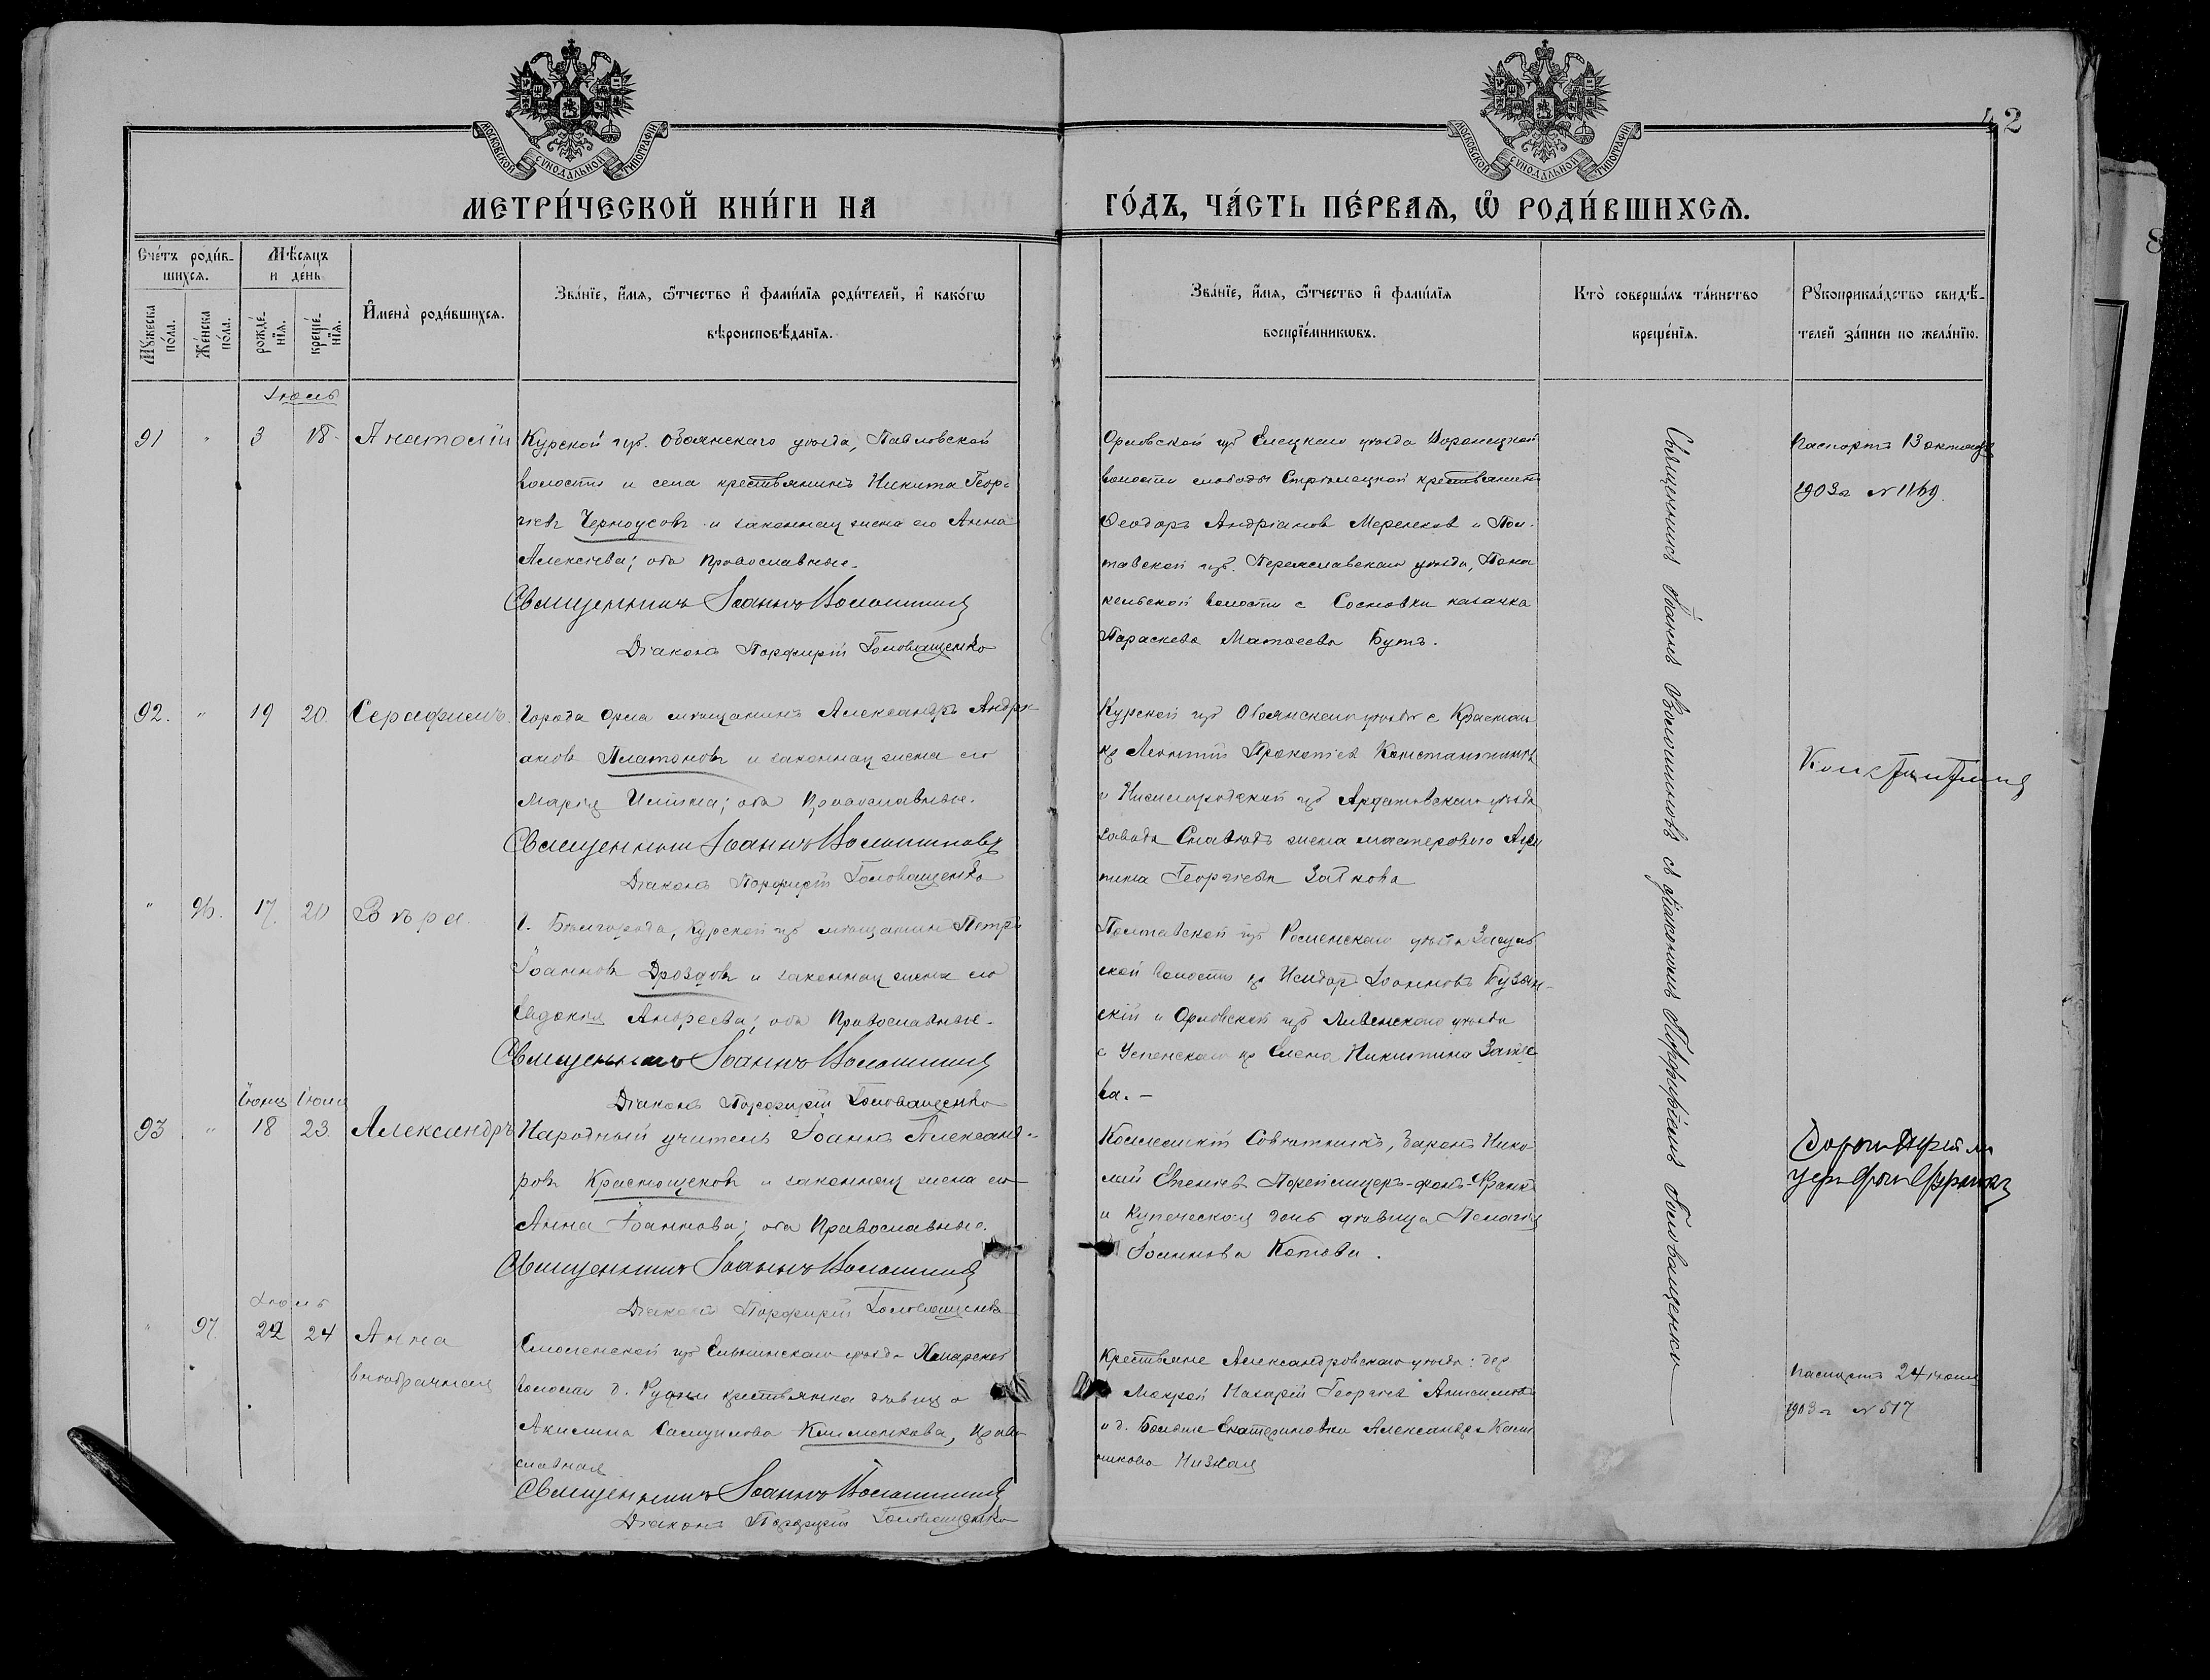 42
МОСКОВСКОЙ СУНОДАЛЬНОЙ ТИПОГРАФІИ
МОСКОВСКОЙ СУНОДАЛЬНОЙ ТИПОГРАФІИ
МЕТРИ́ЧЕСКОЙ КНИ́ГИ НА
ГО́ДЪ, ЧА́СТЬ ПЕ́РВАѦ, Ѡ҆ РОДИ́ВШИХСѦ.
Сче́тъ роди́в-
шихсѧ.
Мꙋ́жеска по́ла.
Же́нска по́ла.
Мѣ́сѧцъ
и де́нь
рожде́-
нїѧ.
креще́-
нїѧ.
И҆мена̀ роди́вшихсѧ.
Зва́нїе, и҆́мѧ, ѻ҆́тчество и҆ фами́лїѧ роди́телей, и҆ како́гѡ
вѣроисповѣ́данїѧ.
Зва́нїе, и҆́мѧ, ѻ҆́тчество и҆ фами́лїѧ
воспрїе́мникѡвъ.
Кто̀ соверша́лъ та́инство
креще́нїѧ.
Рꙋкоприкла́дство свидѣ́-
телей за́писи по жела́нїю.
Іюль
91 " 3 18 Анатолій
Курской губ. Обоянскаго уѣзда, Павловской
волости и села крестьянинъ Никита Геор-
гіевъ Черноусовъ и законная жена его Анна
Алексіева; оба православные.
Священникъ Іоаннъ Волошинов
Діаконъ Порфирій Головащенко
Орловской губ Елецкаго уѣзда
волости слободы Стрѣлецкой крестьянинъ
Ѳеодоръ Андріановъ Меренков и Пол-
тавской губ. Переяславскаго уѣзда,
волости с Сосновки казачка
Параскева Матѳеева Бутъ.
Священникъ Іоаннъ Волошиновъ съ діакономъ Порфиріемъ Головащенко
Паспортъ 13 октября
1903 г № 1169.
92. " 19 20. Серафимъ.
Города Орла мѣщанинъ Александръ Андрі-
ановъ Платоновъ и законная жена его
Марія Ильина; оба православные.
Священникъ Іоаннъ Волошиновъ
Діаконъ Порфирій Головащенко
Курской губ Обоянскаго уѣзда с
кр Леонтій Прокопіев Константиновъ
и Нижегородской губ Ардатовскаго уѣзда
завода жена мастероваго Агри
пина Георгіева Зайкова
" 96. 17. 20 Вѣра.
г. Бѣлгорода, Курской губ мѣщанин Петръ
Іоанновъ Дроздовъ и законная жена его
Евдокія Андреева; оба православные.
Священникъ Іоаннъ Волошинов
Діаконъ Порфирій Головащенко
Полтавской губ Роменскаго уѣзда Засуль
ской волости кр Исидоръ Іоанновъ
скій и Орловской губ Ливенскаго уѣзда
с Успенскаго кр Елена Никитина
ва. —
Іюня Іюля
93 " 18 23. Александръ
Народный учитель Іоаннъ Александ-
ровъ Краснощековъ и законная жена его
Анна Іоаннова; оба православные.
Священникъ Іоаннъ Волошинов
Діаконъ Порфирій Головащенко
Коллежскій Совѣтникъ, Баронъ Нико-
лай Евгеніевъ -фонъ-Франкъ
и купеческая дочь дѣвица Пелагія
Іоаннова Котова.
Іюль
" 97. 22 24 Анна
внѣбрачная
Смоленской губ Ельнинскаго уѣзда
волости д. Рудни крестьянка дѣвица
Акилина Самуилова Клименкова, право
славная
Священникъ Іоаннъ Волошинов
Діаконъ Порфирій Головащенко
Крестьяне Александровскаго уѣзда: дер
Мокрой Назарій Георгіев
и д. Больше Екатериновки Александра
Низкая
Паспортъ 24 іюня
1903 г № 517